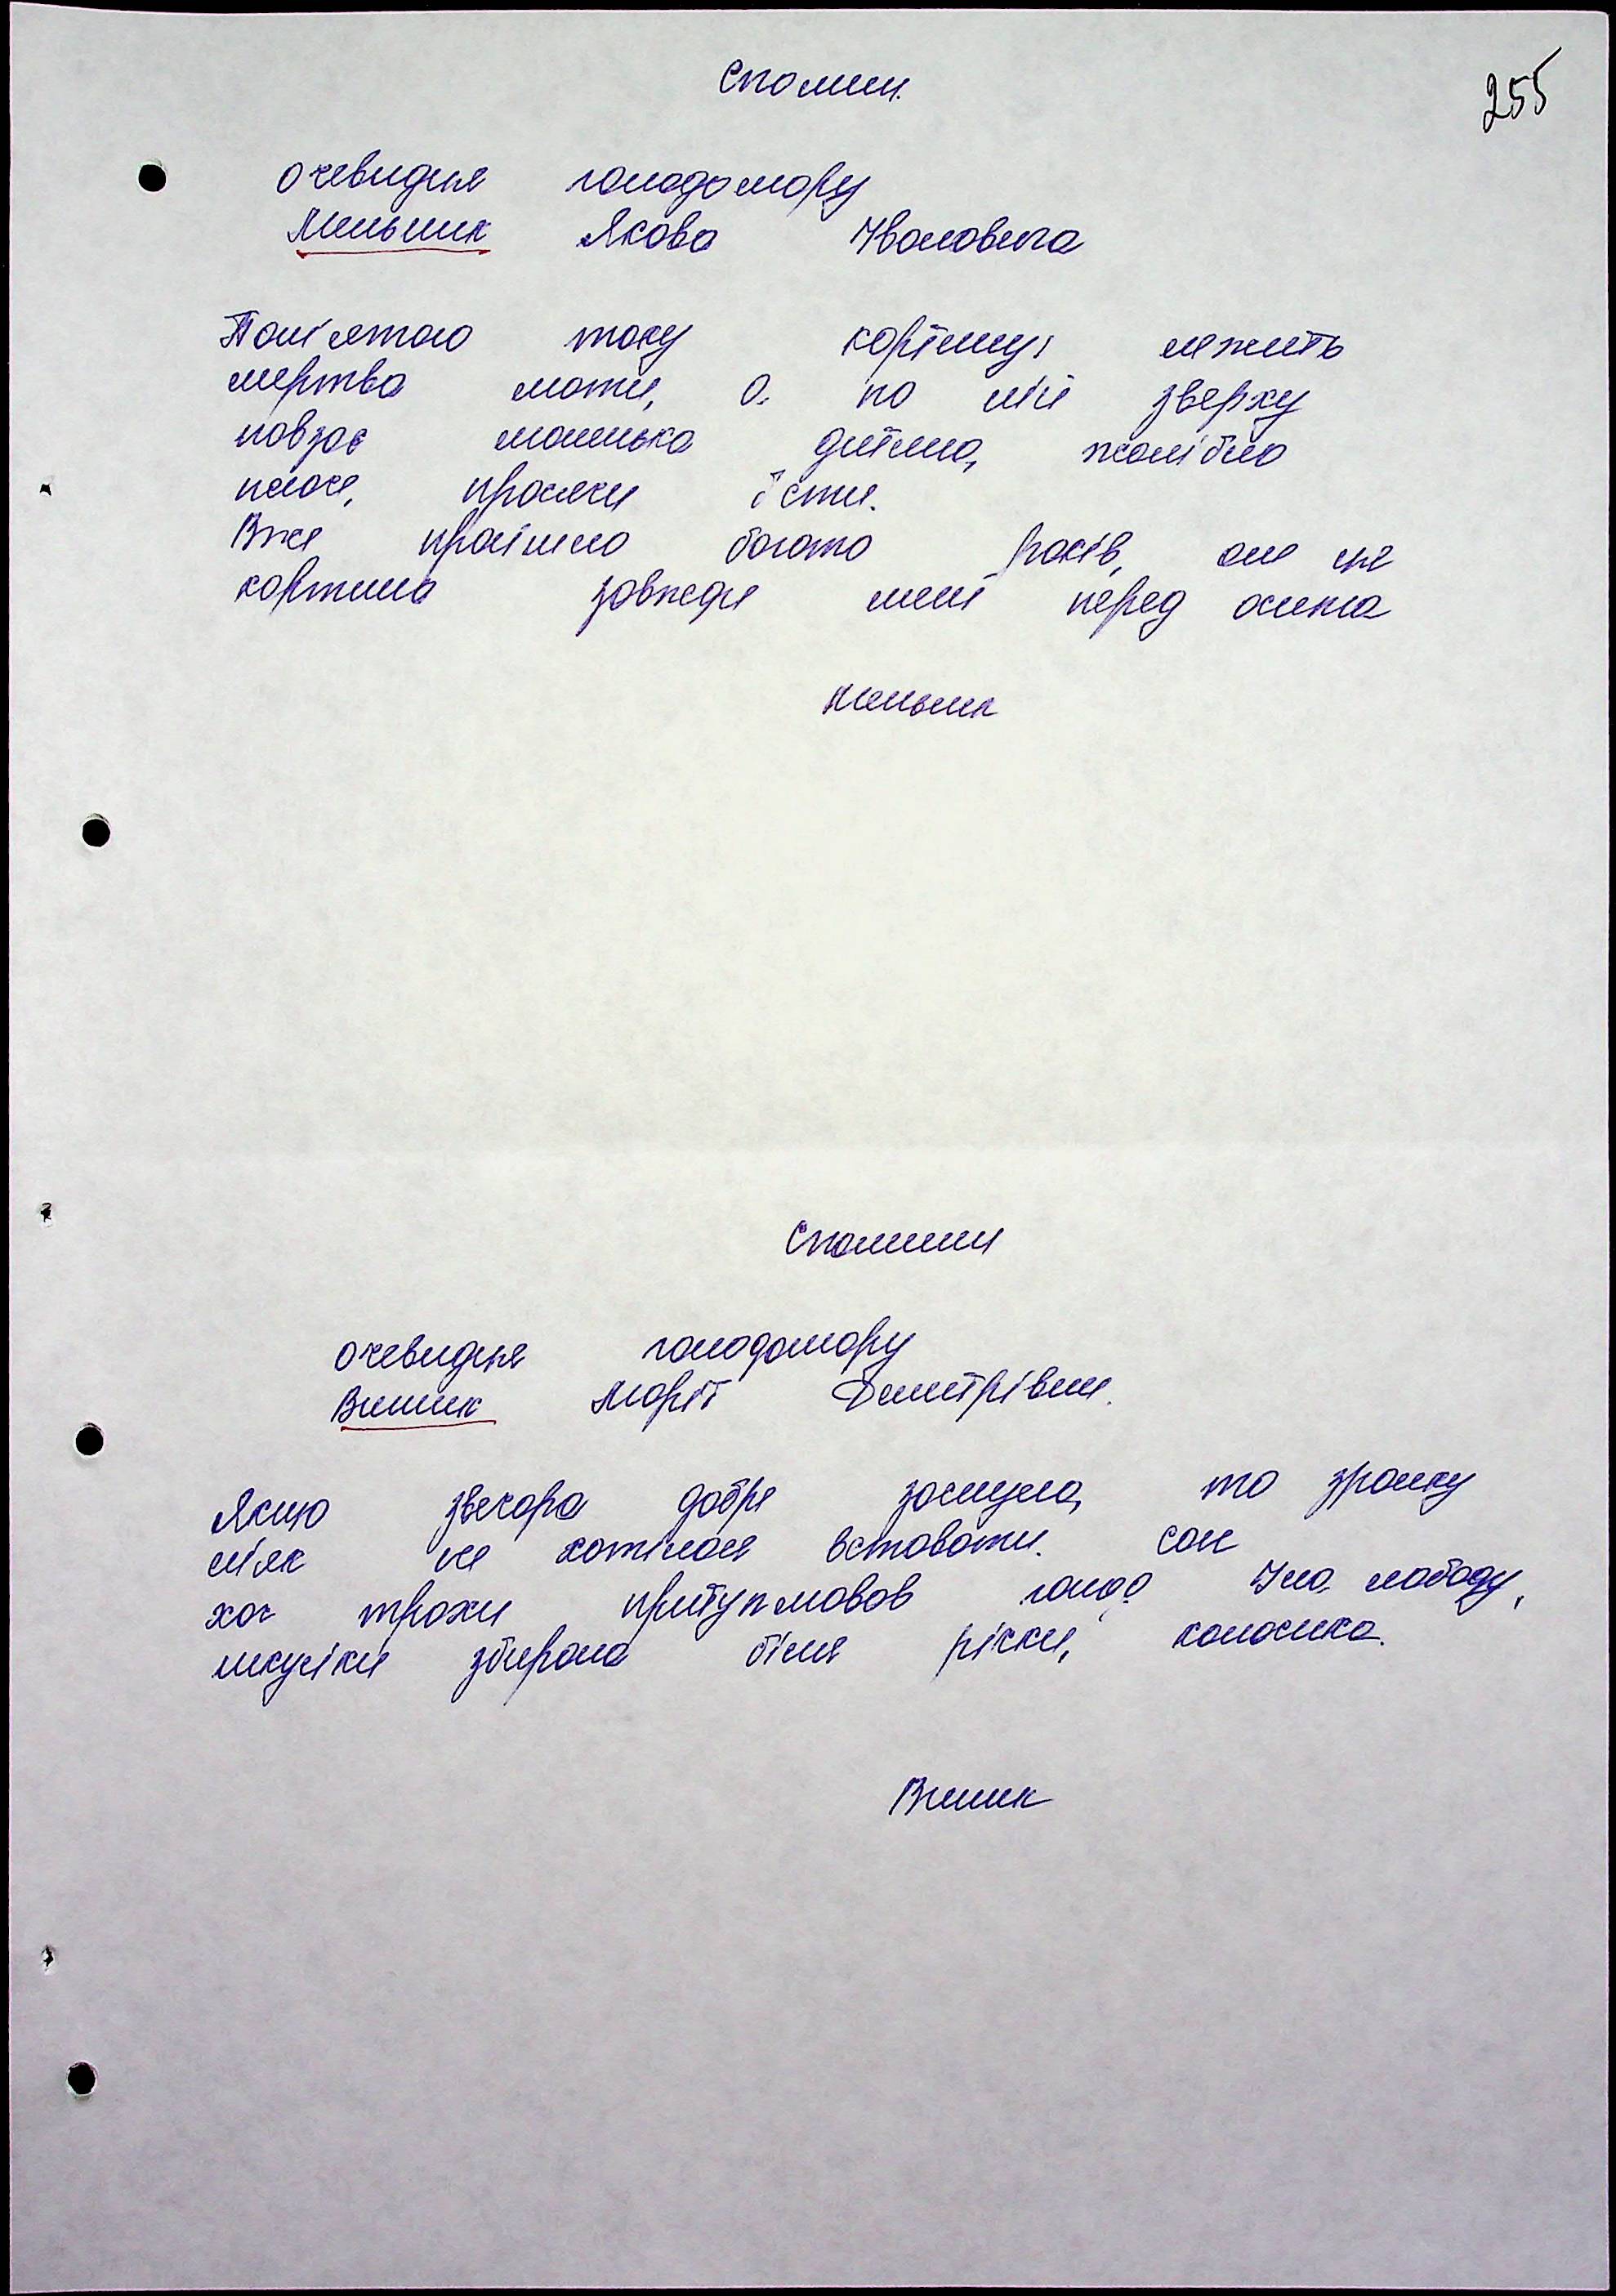 Спомин.
255
очевидця голодомору
Мельник Якова Івановича
Пам'ятаю таку картину: лежить
мертва мати, а по ній зверху
повзає маленька дитина, жалібно
плаче, просячи їсти.
Вже пройшло багато років, але ця
картина завжди мені перед очима
Мельник
Спомини
очевидця голодомору
Вишик Марії Дмитрівни.
Якщо звечора добре заснула, то зранку
ніяк не хотілося вставати. Сон
хоч трохи притупмовав голод. Їла лободу,
збирала біля річки, колосика.
Вишик